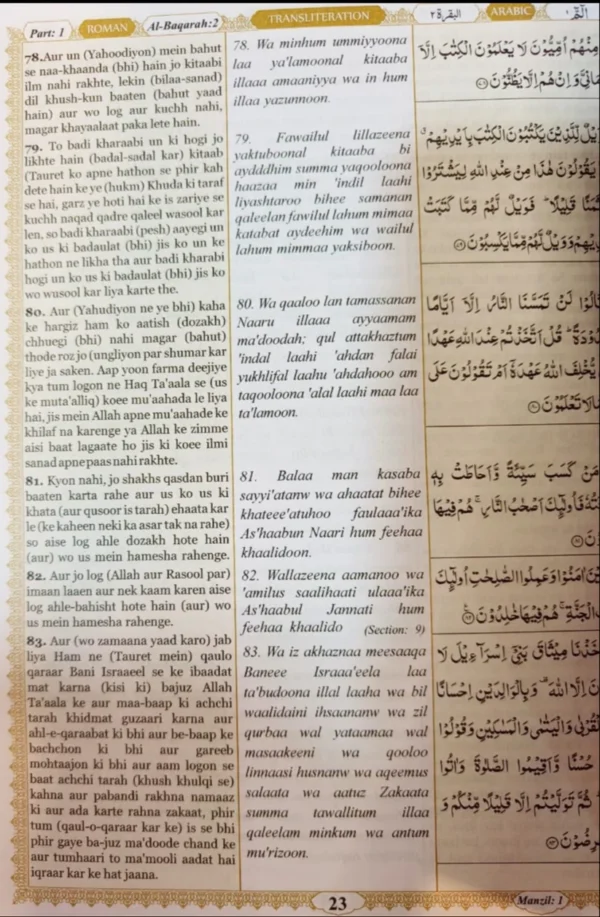 Part: 1
ROMAN
Al-Baqarah:2
TRANSLITERATION
البقرة ٢
ARABIC
الٓمّٓ ١
78.Aur un (Yahoodiyon) mein bahut
se naa-khaanda (bhi) hain jo kitaabi
ilm nahi rakhte, lekin (bilaa-sanad)
dil khush-kun baaten (bahut yaad
hain) aur wo log aur kuchh nahi,
magar khayaalaat paka lete hain.
79. To badi kharaabi un ki hogi jo
likhte hain (badal-sadal kar) kitaab
(Tauret ko apne hathon se phir kah
dete hain ke ye (hukm) Khuda ki taraf
se hai, garz ye hoti hai ke is zariye se
kuchh naqad qadre qaleel wasool kar
len, so badi kharaabi (pesh) aayegi un
ko us ki badaulat (bhi) jis ko un ke
hathon ne likha tha aur badi kharabi
hogi un ko us ki badaulat (bhi) jis ko
wo wusool kar liya karte the.
80. Aur (Yahudiyon ne ye bhi) kaha
ke hargiz ham ko aatish (dozakh)
chhuegi (bhi) nahi magar (bahut)
thode roz jo (ungliyon par shumar kar
liye ja saken. Aap yoon farma deejiye
kya tum logon ne Haq Ta'aala se (us
ke muta'alliq) koee mu'aahada le liya
hai, jis mein Allah apne mu'aahade ke
khilaf na karenge ya Allah ke zimme
aisi baat lagaate ho jis ki koee ilmi
sanad apne paas nahi rakhte.
81. Kyon nahi, jo shakhs qasdan buri
baaten karta rahe aur us ko us ki
khata (aur qusoor is tarah) ehaata kar
le (ke kaheen neki ka asar tak na rahe)
so aise log ahle dozakh hote hain
(aur) wo us mein hamesha rahenge.
82. Aur jo log (Allah aur Rasool par)
imaan laaen aur nek kaam karen aise
log ahle-bahisht hote hain (aur) wo
us mein hamesha rahenge.
83. Aur (wo zamaana yaad karo) jab
liya Ham ne (Tauret mein) qaulo
qaraar Bani Israaeel se ke ibaadat
mat karna (kisi ki) bajuz Allah
Ta'aala ke aur maa-baap ki achchi
tarah khidmat guzaari karna aur
ahl-e-qaraabat ki bhi aur be-baap ke
bachchon ki bhi aur gareeb
mohtaajon ki bhi aur aam logon se
baat achchi tarah (khush khulqi se)
kahna aur pabandi rakhna namaaz
ki aur ada karte rahna zakaat, phir
tum (qaul-o-qaraar kar ke) is se bhi
phir gaye ba-juz ma'doode chand ke
aur tumhaari to ma'mooli aadat hai
iqraar kar ke hat jaana.
78. Wa minhum ummiyyoona
laa ya'lamoonal kitaaba
illaaa amaaniyya wa in hum
illaa yazunnoon.
79. Fawailul lillazeena
yaktuboonal kitaaba bi
aydddhim summa yaqooloona
haazaa min 'indil laahi
liyashtaroo bihee samanan
qaleelan fawilul lahum mimaa
katabat aydeehim wa wailul
lahum mimmaa yaksiboon.
80. Wa qaaloo lan tamassanan
Naaru illaaa ayyaamam
ma'doodah; qul attakhaztum
'indal laahi 'ahdan falai
yukhlifal laahu 'ahdahooo am
taqooloona 'alal laahi maa laa
ta'lamoon.
81. Balaa man kasaba
sayyi'atanw wa ahaatat bihee
khateee'atuhoo faulaaa'ika
As'haabun Naari hum feehaa
khaalidoon.
82. Wallazeena aamanoo wa
'amilus saalihaati ulaaa'ika
As'haabul Jannati hum
feehaa khaalido (Section: 9)
83. Wa iz akhaznaa meesaaqa
Baneee Israaa'eela laa
ta'budoona illal laaha wa bil
waalidaini ihsaananw wa zil
qurbaa wal yataamaa wal
masaakeeni wa qooloo
linnaasi husnanw wa aqeemus
salaata wa aatuz Zakaata
summa tawallitum illaa
qaleelam minkum wa antum
mu'rizoon.
مِنْهُمْ اُمِّيُّوْنَ لَا يَعْلَمُوْنَ الْكِتٰبَ اِلَّاۤ
مَانِیَّ وَاِنْ هُمْ اِلَّا يَظُنُّوْنَ
يْلٌ لِّلَّذِيْنَ يَكْتُبُوْنَ الْكِتٰبَ بِاَيْدِيْهِمْ
يَقُوْلُوْنَ هٰذَا مِنْ عِنْدِ اللّٰهِ لِيَشْتَرُوْا
ثَمَنًا قَلِيْلًا فَوَيْلٌ لَّهُمْ مِّمَّا كَتَبَتْ
يْدِيْهِمْ وَوَيْلٌ لَّهُمْ مِّمَّا يَكْسِبُوْنَ
الُوْا لَنْ تَمَسَّنَا النَّارُ اِلَّاۤ اَيَّامًا
دُوْدَةً قُلْ اَتَّخَذْتُمْ عِنْدَ اللّٰهِ عَهْدًا
يُّخْلِفَ اللّٰهُ عَهْدَهٗۤ اَمْ تَقُوْلُوْنَ عَلَى
مَا لَا تَعْلَمُوْنَ
مَنْ كَسَبَ سَيِّئَةً وَّاَحَاطَتْ بِهٖ
ئَتُهٗ فَاُولٰٓئِكَ اَصْحٰبُ النَّارِ هُمْ فِيْهَا
يْنَ اٰمَنُوْا وَعَمِلُوا الصّٰلِحٰتِ اُولٰٓئِكَ
الْجَنَّةِ هُمْ فِيْهَا خٰلِدُوْنَ
خَذْنَا مِيْثَاقَ بَنِيْۤ اِسْرَآءِيْلَ لَا
نَ اِلَّا اللّٰهَ وَبِالْوَالِدَيْنِ اِحْسَانًا
لْقُرْبٰى وَالْيَتٰمٰى وَالْمَسٰكِيْنِ وَقُوْلُوْا
حُسْنًا وَّاَقِيْمُوا الصَّلٰوةَ وَاٰتُوا
ثُمَّ تَوَلَّيْتُمْ اِلَّا قَلِيْلًا مِّنْكُمْ وَ
رِضُوْنَ
23
Manzil: 1